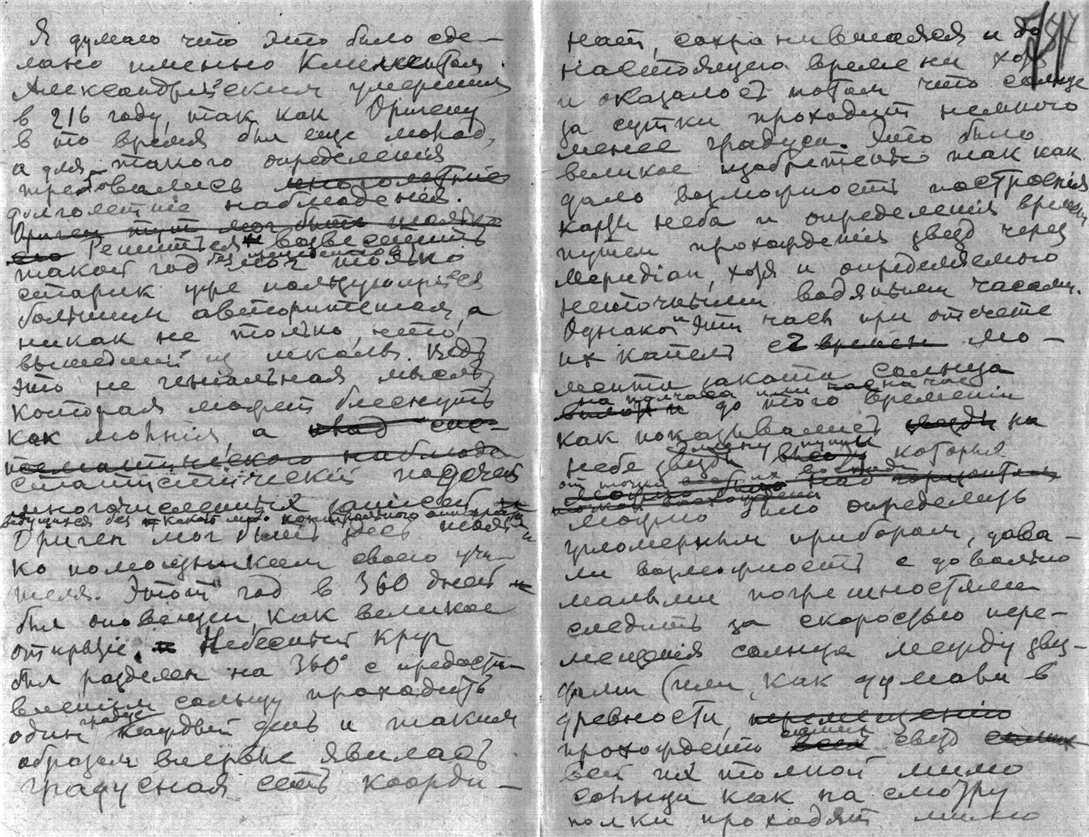 Я думаю что это было сде-
лано именно Климентом
Александрійским умершим
в 216 году, так как Оригену
в то время был еще молод,
а для такого определенія
требовались многолетние
долголетніе наблюденія.
Ориген тут мог быть только
его Решиться возвестить
такой год мог только
старик уже пользующійся
большим авторитетом, а
никак не только что
вышедшій из школы. Ведь
это не геніальная мысль
которая может блеснуть
как молнія, а
систематического наблюде
статистическій подсчет
многочисленных записей
ведущихся без какого либо
Ориген мог быть здесь
ко помощником своего учи-
теля. Этот год в 360 дней
был оповещен, как великое
открытіе. Небесный круг
был разделен на 360° с предоста-
вленіем солнцу проходить
один градус каждый день и таким
образом впервые явилась
градусная сеть коорди-
нат, сохранившаяся и до
настоящего времени хотя
и оказалось потом что солнце
за сутки проходит немного
менее градуса. Это было
великое изобретеніе так как
дало возможность построенія
карты неба и определенія времени
путем прохожденія звезд через
меридіан, хотя и определяемого
неточными водяными часами.
Однако эти часы при отсчете
их капель с времен мо-
мента заката солнца
на полчаса или на час
и до того времени
как показывались звезды на
небе звезды высоту которых
от точки
можно было определить
угломерным прибором, дава-
ли возможность с довольно
малыми погрешностями
следить за скоростью пере-
мещенія солнца между звез-
дами (или, как думали в
древности, перемещению
прохождению самих всей звезд
всей их толпой мимо
солнца как на смотру
полки проходят мимо